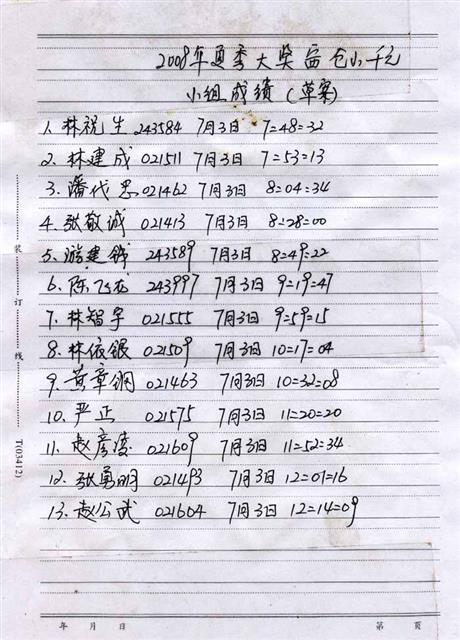 2008年夏季大奖面仓山千元
小组成绩(草案)
1、林祝生 243584 7月3日 7=48=32
2、林建成 021511 7月3日 7=53=13
3、潘代思 021462 7月3日 8=04=34
4、张敬诚 021413 7月3日 8=28=00
5、游建锋 243589 7月3日 8=49=22
6、陈飞龙 243997 7月3日 9=19=47
7、林智宇 021555 7月3日 9=59=15
8、林依银 021509 7月3日 10=17=04
9、黄章钢 021463 7月3日 10=32=08
10、严正 021575 7月3日 11=20=20
11、赵彦凌 021609 7月3日 11=52=34
12、张勇明 021493 7月3日 12=01=16
13、赵公武 021604 7月3日 12=14=09
装 订 线
T(03412)
年 月 日 第 页